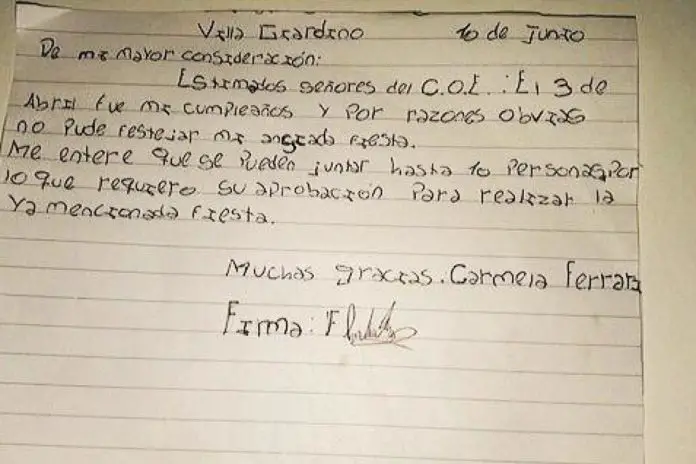 Villa Giardino 10 de Junio
De mi mayor consideración:
Estimados señores del C.O.E.: El 3 de
Abril fue mi cumpleaños y por razones obvias
no pude festejar mi ansiada fiesta.
Me entere que se pueden juntar hasta 10 personas, por
lo que requiero su aprobación para realizar la
ya mencionada fiesta.
Muchas gracias. Carmela Ferrari
Firma: